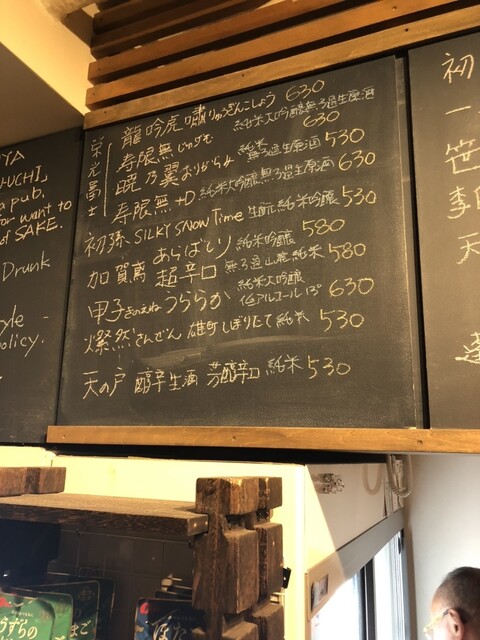 YA
HUCHI」
a pub.
for want to
of SAKE.
Drunk
yle -
policy.
栄光冨士
龍吟虎嘯 りゅうぎんこしょう 630
純米大吟醸無ろ過生原酒
寿限無 じゅげむ 630
純米
無ろ過生原酒
暁乃翼 おりがらみ 530
寿限無+D 純米大吟醸無ろ過生原酒 630
初孫、SILKY SNOW Time 生酛純米吟醸 530
加賀鳶 あらばしり 純米吟醸 580
超辛口 無ろ過山廃純米 580
甲子 きのえね うららか 純米大吟醸 630
低アルコール13°
燦然 さんぜん 雄町しぼりたて 純米 530
天の戸 醇辛生酒 芳醇辛口 純米 530
初
一
笹
李白
天
蓬
うずらの
まご